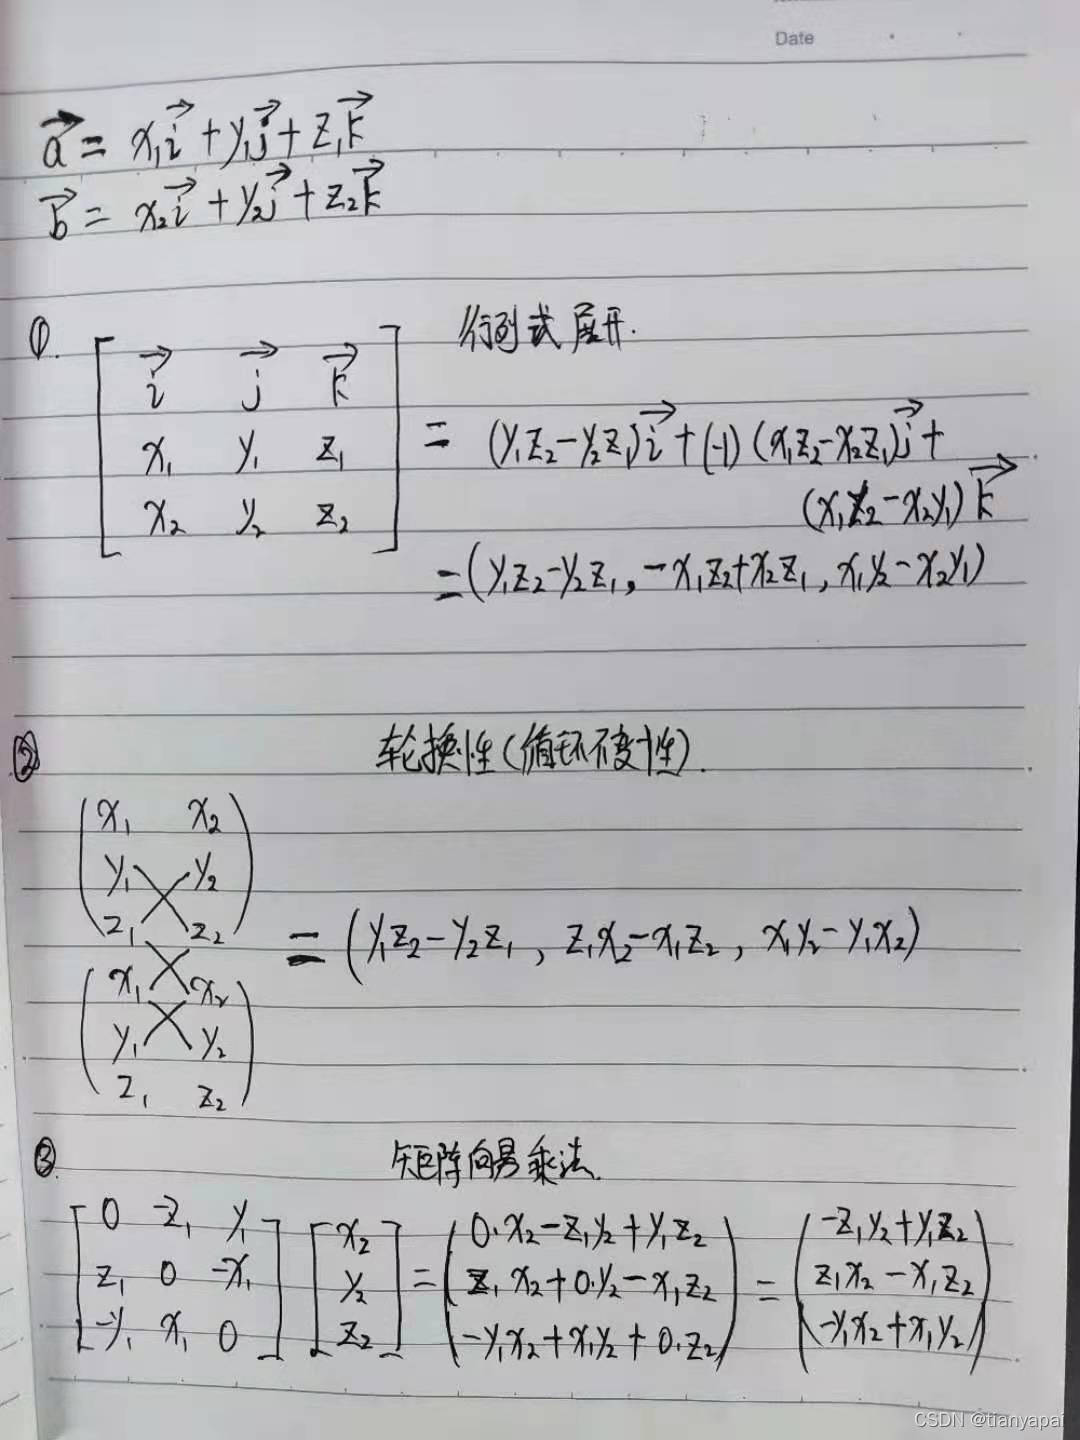 Date
a⃗ = x₁i⃗ + y₁j⃗ + z₁k⃗
b⃗ = x₂i⃗ + y₂j⃗ + z₂k⃗
①. 行列式展开.
[ i⃗ j⃗ k⃗
x₁ y₁ z₁
x₂ y₂ z₂ ]
= (y₁z₂-y₂z₁)i⃗ + (-1)(x₁z₂-x₂z₁)j⃗ +
(x₁z₂-x₂y₁)k⃗
= (y₁z₂-y₂z₁, -x₁z₂+x₂z₁, x₁y₂-x₂y₁)
② 轮换性(循环不变性).
( x₁ x₂
y₁ y₂
z₁ z₂
( x₁ x₂
y₁ y₂
z₁ z₂ )
= (y₁z₂-y₂z₁, z₁x₂-x₁z₂, x₁y₂-y₁x₂)
③. 矩阵向量乘法.
[ 0 -z₁ y₁ ] [ x₂ ] = ( 0·x₂-z₁y₂+y₁z₂ ) = ( -z₁y₂+y₁z₂ )
[ z₁ 0 -x₁ ] [ y₂ ] ( z₁x₂+0·y₂-x₁z₂ ) ( z₁x₂-x₁z₂ )
[ -y₁ x₁ 0 ] [ z₂ ] ( -y₁x₂+x₁y₂+0·z₂ ) ( -y₁x₂+x₁y₂ )
CSDN @tianyapai